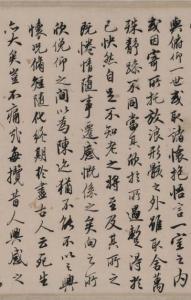 與俯仰一世或取諸懷抱悟言一室之内
或因寄所托放浪形骸之外雖取舍萬
殊靜躁不同當其欣於所遇暫得於
己快然自足不知老之將至及其所之
既惓情隨事遷感慨係之矣向之所
欣俛仰之間以為陳迹猶不能不以之興
懷況脩短隨化終期於盡古人云死生
亦大矣豈不痛哉每攬昔人興感之